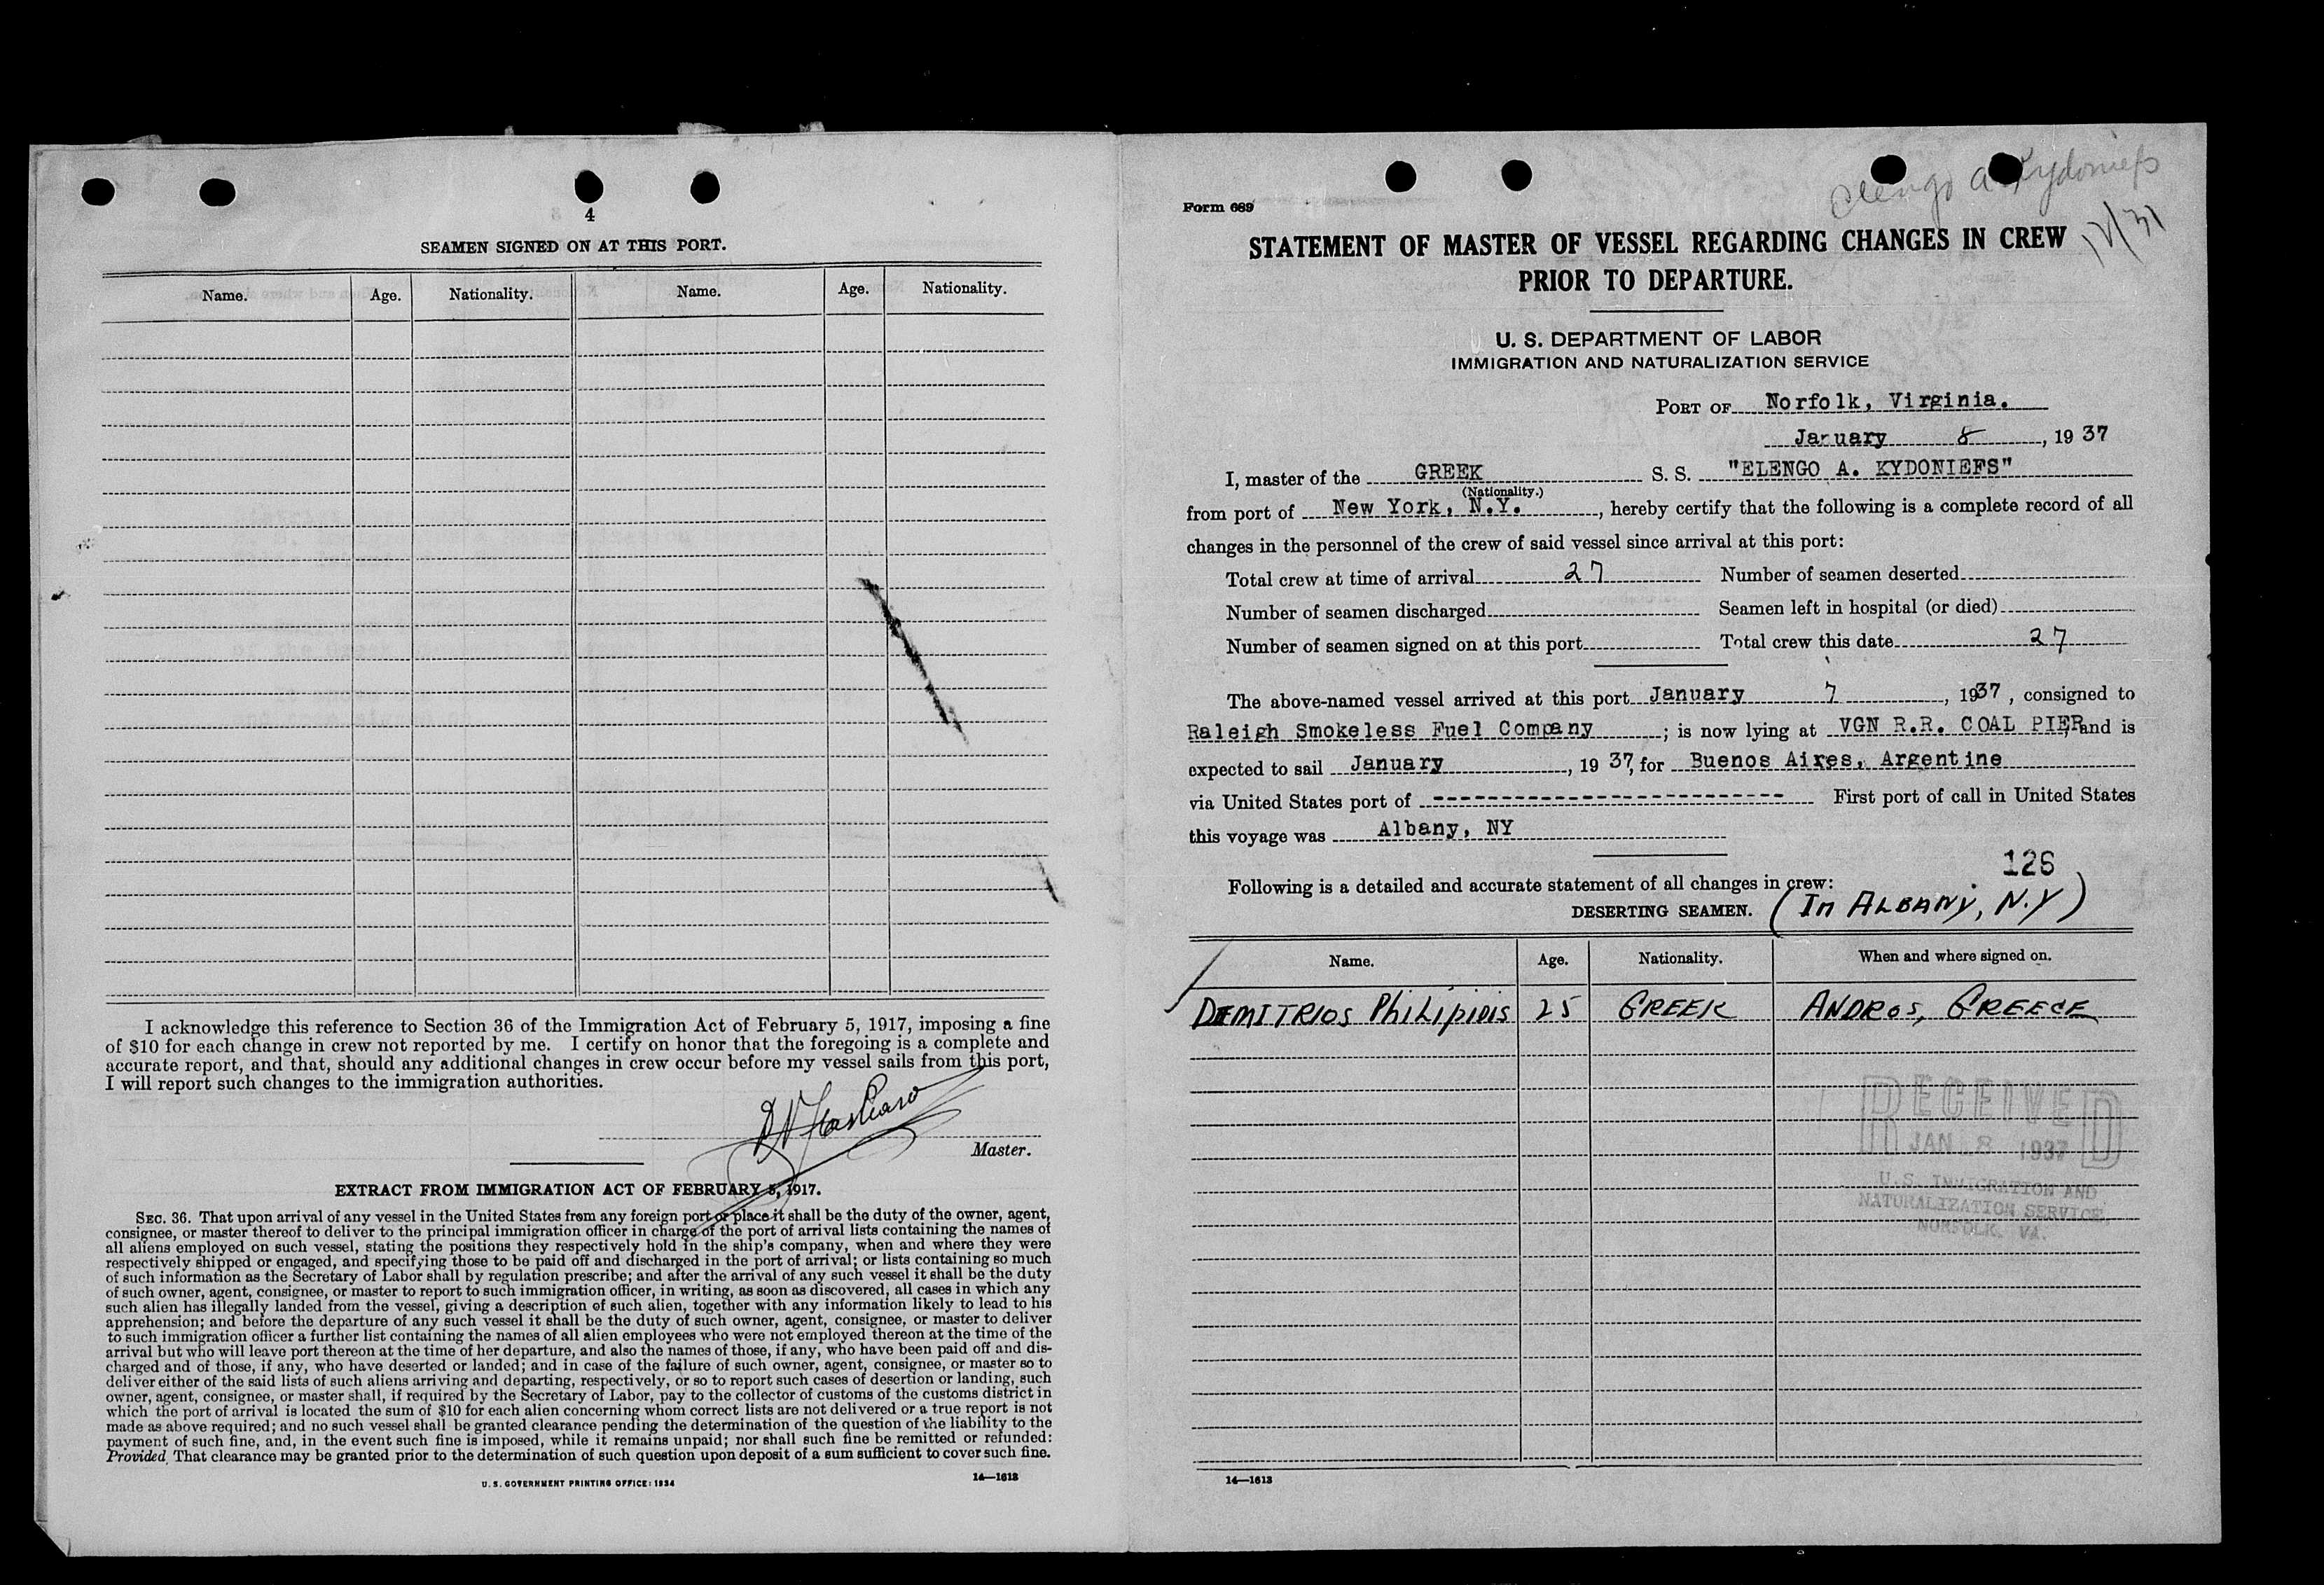 4
SEAMEN SIGNED ON AT THIS PORT.
Name. Age. Nationality. Name. Age. Nationality.
I acknowledge this reference to Section 36 of the Immigration Act of February 5, 1917, imposing a fine
of $10 for each change in crew not reported by me. I certify on honor that the foregoing is a complete and
accurate report, and that, should any additional changes in crew occur before my vessel sails from this port,
I will report such changes to the immigration authorities.
Master.
EXTRACT FROM IMMIGRATION ACT OF FEBRUARY 5, 1917.
SEC. 36. That upon arrival of any vessel in the United States from any foreign port or place it shall be the duty of the owner, agent,
consignee, or master thereof to deliver to the principal immigration officer in charge of the port of arrival lists containing the names of
all aliens employed on such vessel, stating the positions they respectively hold in the ship's company, when and where they were
respectively shipped or engaged, and specifying those to be paid off and discharged in the port of arrival; or lists containing so much
of such information as the Secretary of Labor shall by regulation prescribe; and after the arrival of any such vessel it shall be the duty
of such owner, agent, consignee, or master to report to such immigration officer, in writing, as soon as discovered, all cases in which any
such alien has illegally landed from the vessel, giving a description of such alien, together with any information likely to lead to his
apprehension; and before the departure of any such vessel it shall be the duty of such owner, agent, consignee, or master to deliver
to such immigration officer a further list containing the names of all alien employees who were not employed thereon at the time of the
arrival but who will leave port thereon at the time of her departure, and also the names of those, if any, who have been paid off and dis-
charged and of those, if any, who have deserted or landed; and in case of the failure of such owner, agent, consignee, or master so to
deliver either of the said lists of such aliens arriving and departing, respectively, or so to report such cases of desertion or landing, such
owner, agent, consignee, or master shall, if required by the Secretary of Labor, pay to the collector of customs of the customs district in
which the port of arrival is located the sum of $10 for each alien concerning whom correct lists are not delivered or a true report is not
made as above required; and no such vessel shall be granted clearance pending the determination of the question of the liability to the
payment of such fine, and, in the event such fine is imposed, while it remains unpaid; nor shall such fine be remitted or refunded:
Provided, That clearance may be granted prior to the determination of such question upon deposit of a sum sufficient to cover such fine.
U. S. GOVERNMENT PRINTING OFFICE: 1934 14—1613
Elengo A Kydoniefs
Form 689
STATEMENT OF MASTER OF VESSEL REGARDING CHANGES IN CREW
PRIOR TO DEPARTURE.
U. S. DEPARTMENT OF LABOR
IMMIGRATION AND NATURALIZATION SERVICE
PORT OF Norfolk, Virginia.
January 8, 1937
I, master of the GREEK S. S. "ELENGO A. KYDONIEFS"
(Nationality.)
from port of New York, N.Y., hereby certify that the following is a complete record of all
changes in the personnel of the crew of said vessel since arrival at this port:
Total crew at time of arrival 27 Number of seamen deserted
Number of seamen discharged Seamen left in hospital (or died)
Number of seamen signed on at this port Total crew this date 27
The above-named vessel arrived at this port January 7, 1937, consigned to
Raleigh Smokeless Fuel Company; is now lying at VGN R.R. COAL PIER, and is
expected to sail January, 1937, for Buenos Aires, Argentine
via United States port of ---------------------------- First port of call in United States
this voyage was Albany, NY
126
Following is a detailed and accurate statement of all changes in crew:
DESERTING SEAMEN. (IN ALBANY, N.Y)
Name. Age. Nationality. When and where signed on.
DEMITRIOS PhiLipidis 25 GREEK ANDROS, GREECE
RECEIVED
JAN 8 1937
U.S. IMMIGRATION AND
NATURALIZATION SERVICE,
NORFOLK, VA.
14—1613